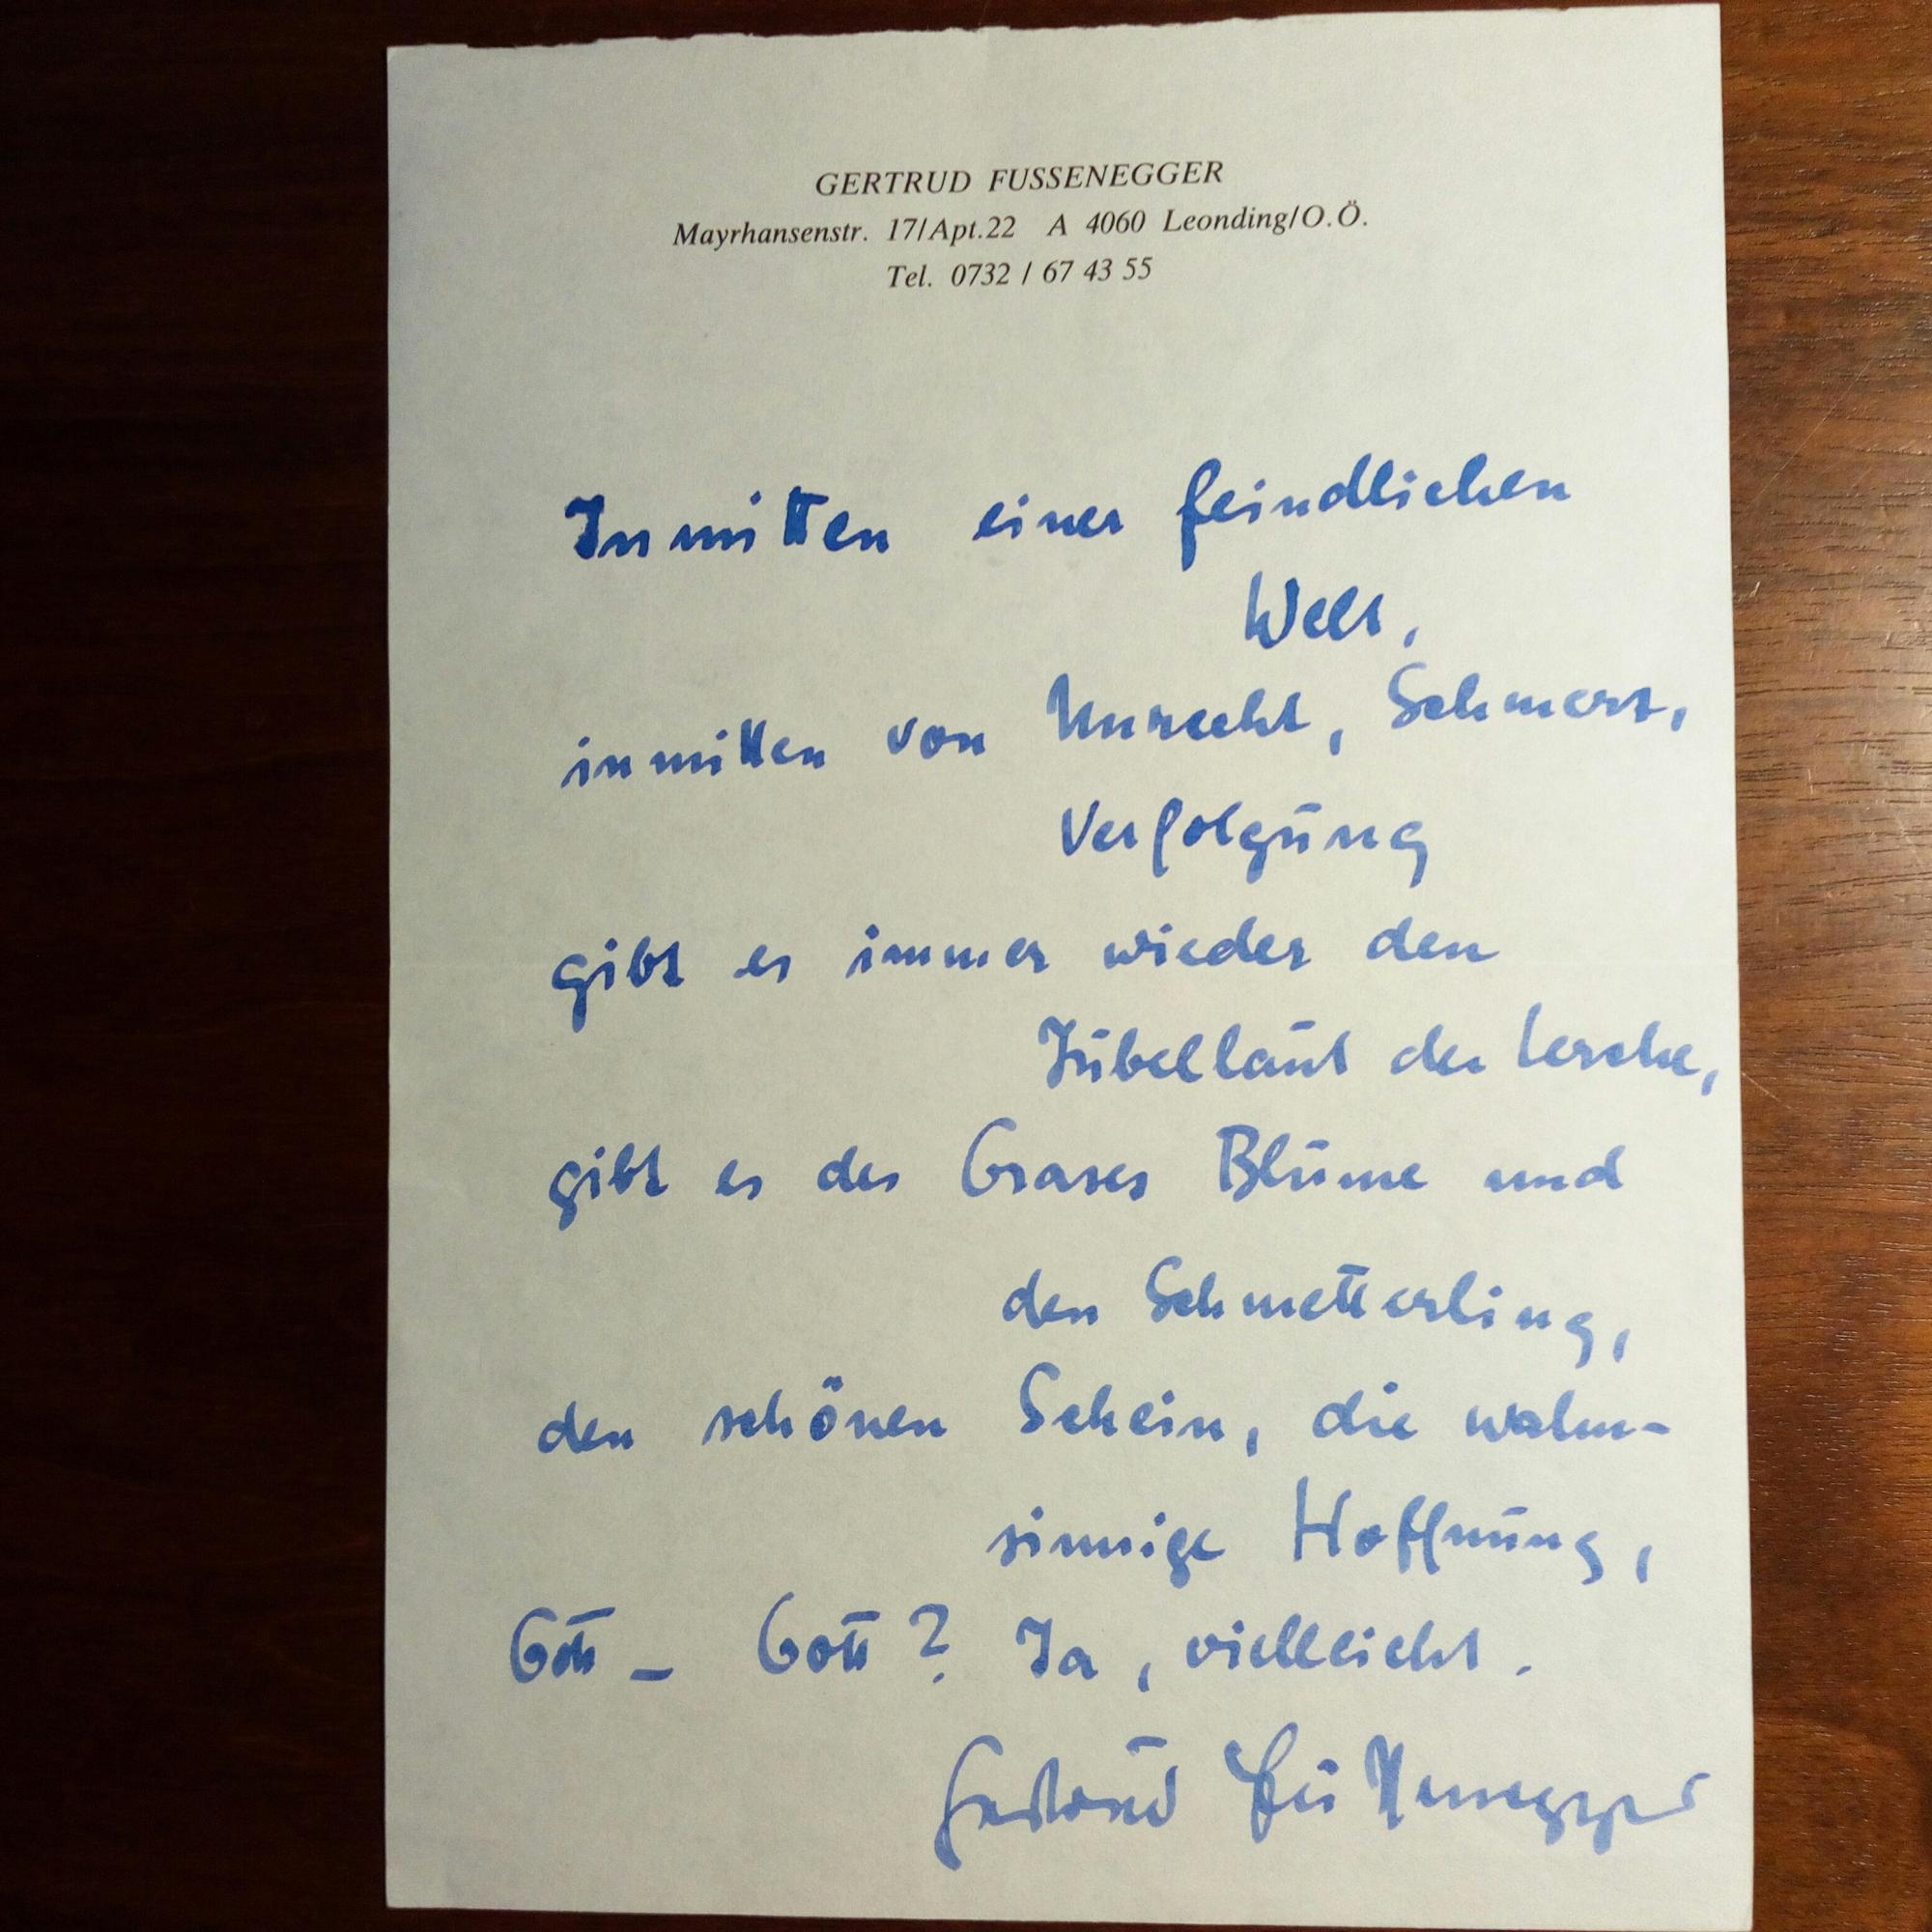 GERTRUD FUSSENEGGER
Mayrhansenstr. 17/Apt.22 A 4060 Leonding/O.Ö.
Tel. 0732 / 67 43 55
Inmitten einer feindlichen
Welt,
inmitten von Unrecht, Schmerz,
Verfolgung
gibt es immer wieder den
Jubellaut der Lerche,
gibt es des Grases Blume und
den Schmetterling,
den schönen Schein, die wahn-
sinnige Hoffnung,
Gott – Gott? Ja, vielleicht.
Gertrud Fussenegger